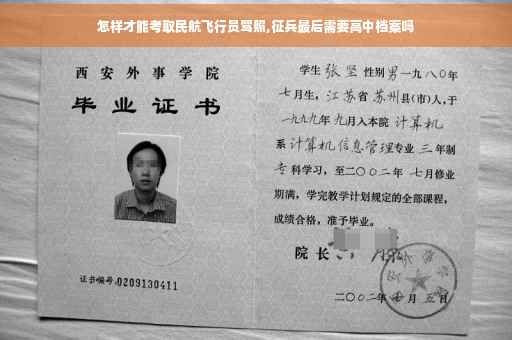 怎样才能考取民航飞行员驾照,征兵最后需要高中档案吗
西安外事学院
毕业证书
证书编号:0209130411
学生 张坚 性别男一九八〇年
七月生，江苏省苏州县(市)人,于
一九九九年九月入本院 计算机
系计算机信息管理专业 三 年制
专科学习，至二〇〇二年 七月修业
期满，学完教学计划规定的全部课程，
成绩合格，准予毕业。
院长
二〇〇二年 月五日